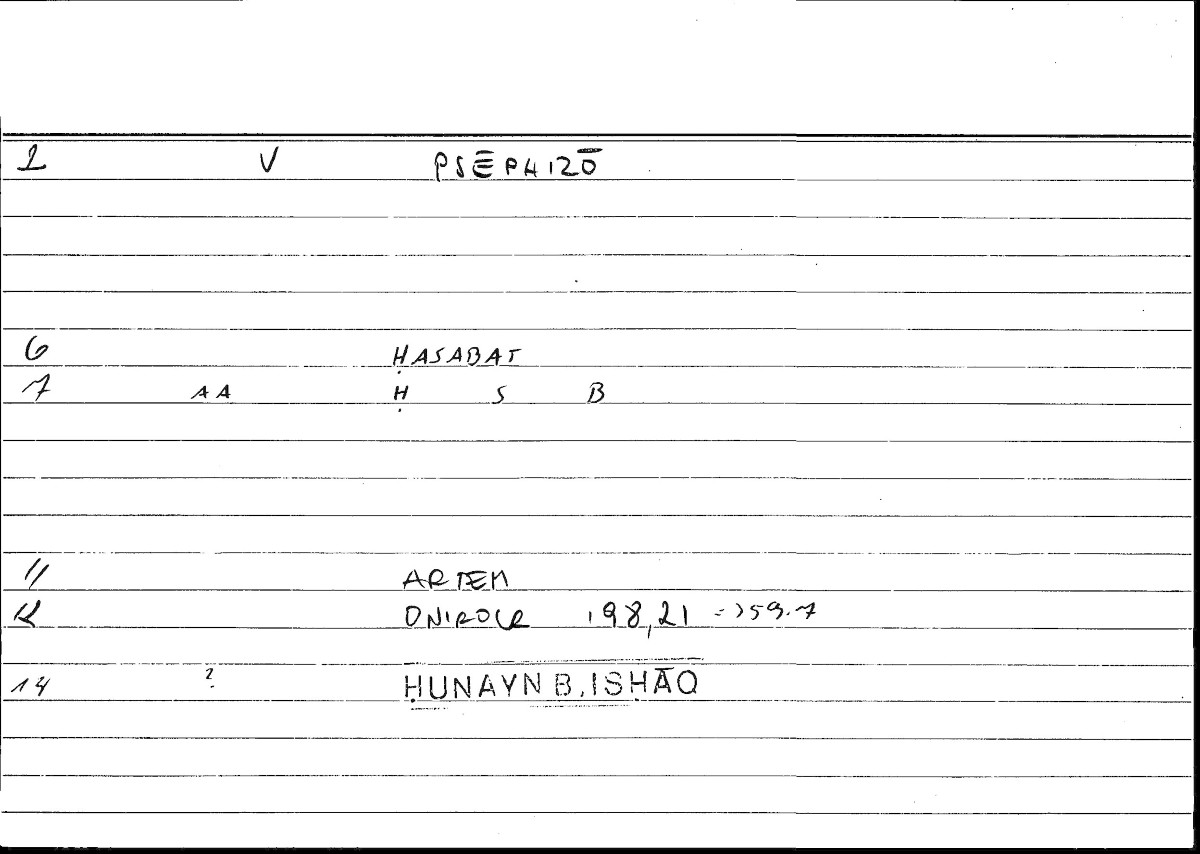 1 V PSĒPHIZŌ
6 ḤASABAT
7 AA Ḥ S B
11 ARTEM
12 ONIROCR 198,21 =)59.7
14 ? ḤUNAYN B. ISḤĀQ